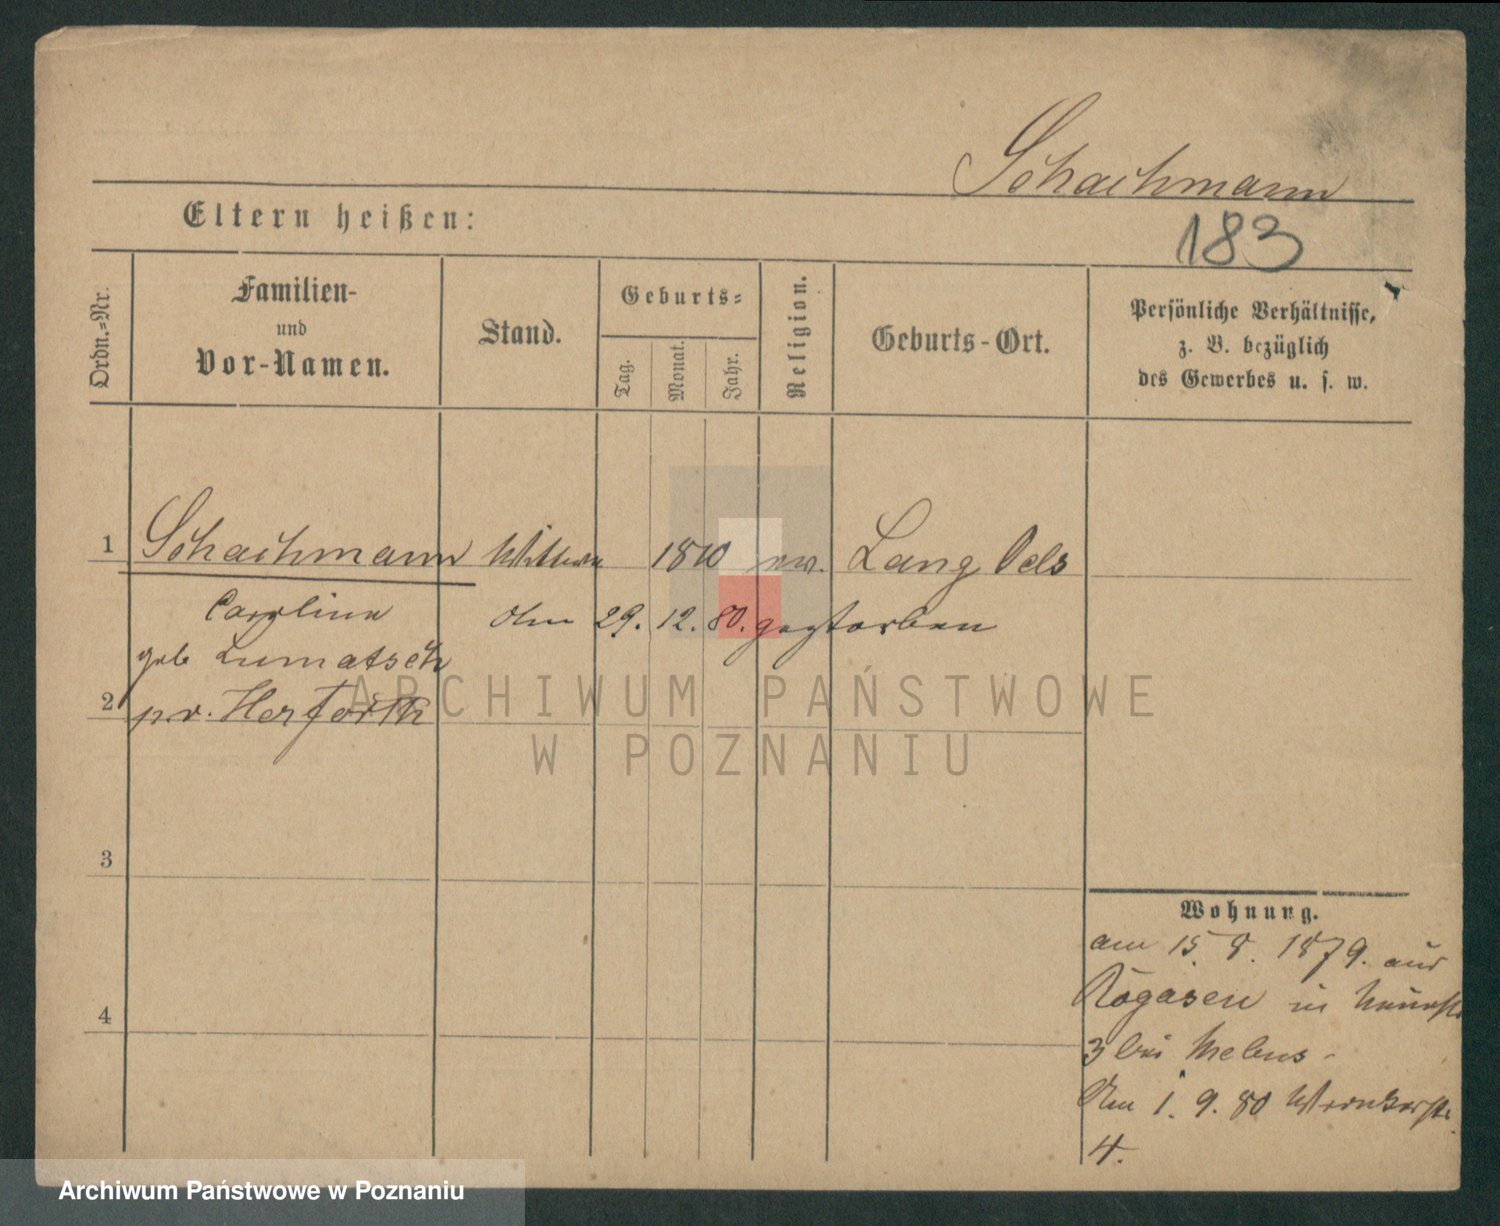 Schachmann
183
Eltern heißen:
Ordn.=Nr.
Familien-
und
Vor-Namen.
Stand.
Geburts=
Tag.
Monat.
Jahr.
Religion.
Geburts-Ort.
Persönliche Verhältnisse,
z. B. bezüglich
des Gewerbes u. s. w.
1 Schachmann Wittwe 1810 ev. Lang Oels
Caroline Am 29. 12. 80. gestorben
geb Lumatsch
2 p.v. Herforth
3
4
Wohnung.
am 15. 8. 1879. aus
Rogasen in
3 bei Mebus
Am 1. 9. 80
4.
ARCHIWUM PAŃSTWOWE
W POZNANIU
Archiwum Państwowe w Poznaniu